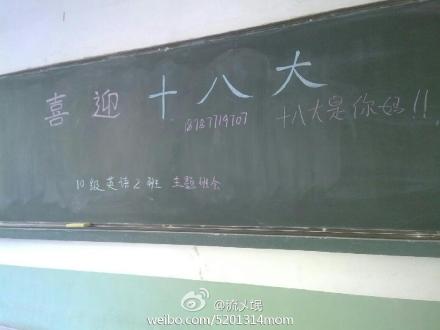 喜迎十八大
18787714707 十八大是你妈!!
10级英语2班 主题班会
@流乄氓
weibo.com/5201314mom